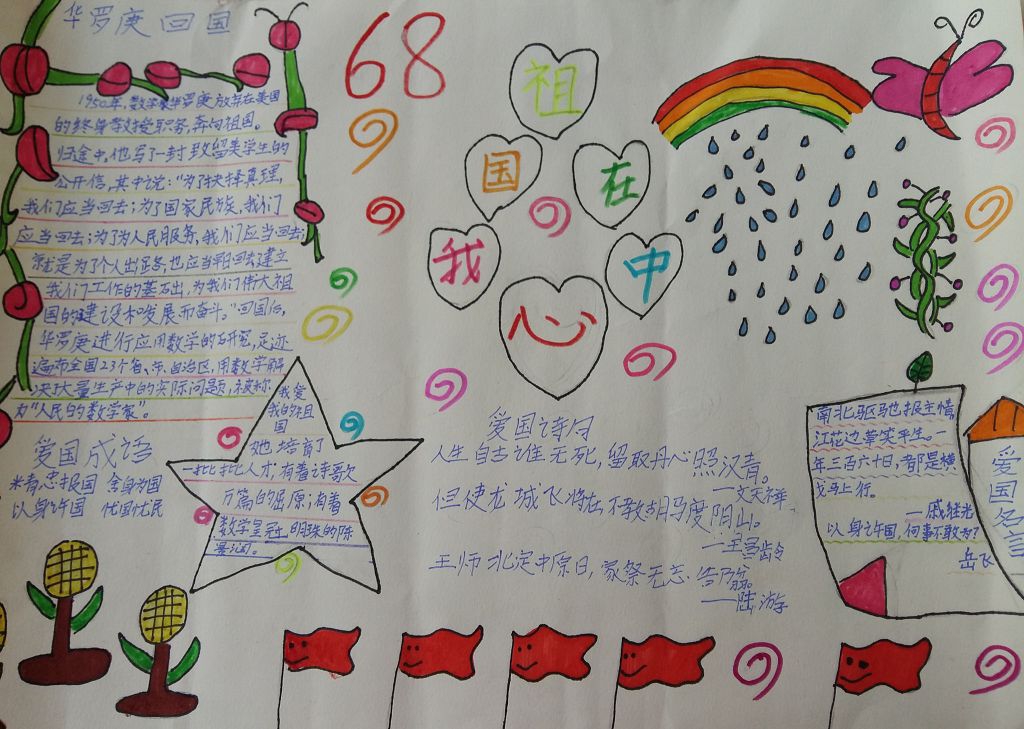 华罗庚回国
1950年,数学家华罗庚放弃在美国
的终身教授职务,奔向祖国。
归途中,他写了一封致留美学生的
公开信,其中说:“为了抉择真理,
我们应当回去;为了国家民族,我们
应当回去;为了为人民服务,我们应当回去;
就是为了个人出路,也应当早日回去,建立
我们工作的基础,为我们伟大祖
国的建设和发展而奋斗。”回国后,
华罗庚进行应用数学的研究,足迹
遍布全国23个省、市、自治区,用数学解
决大量生产中的实际问题,被称
为“人民的数学家”。
68
祖
国
在
我
中
心
爱国成语
精忠报国 舍身为国
以身许国 忧国忧民
我爱
我的祖
国
她培育了
一批批人才;有着诗歌
万篇的屈原;有着
数学皇冠明珠的陈
景润。
爱国诗句
人生自古谁无死,留取丹心照汗青。
—文天祥
但使龙城飞将在,不教胡马度阴山。
—王昌龄
王师北定中原日,家祭无忘告乃翁。
—陆游
南北驱驰报主情,
江花边草笑平生。一
年三百六十日,都是横
戈马上行。
—戚继光
以身许国,何事不敢为?
岳飞
爱国名言